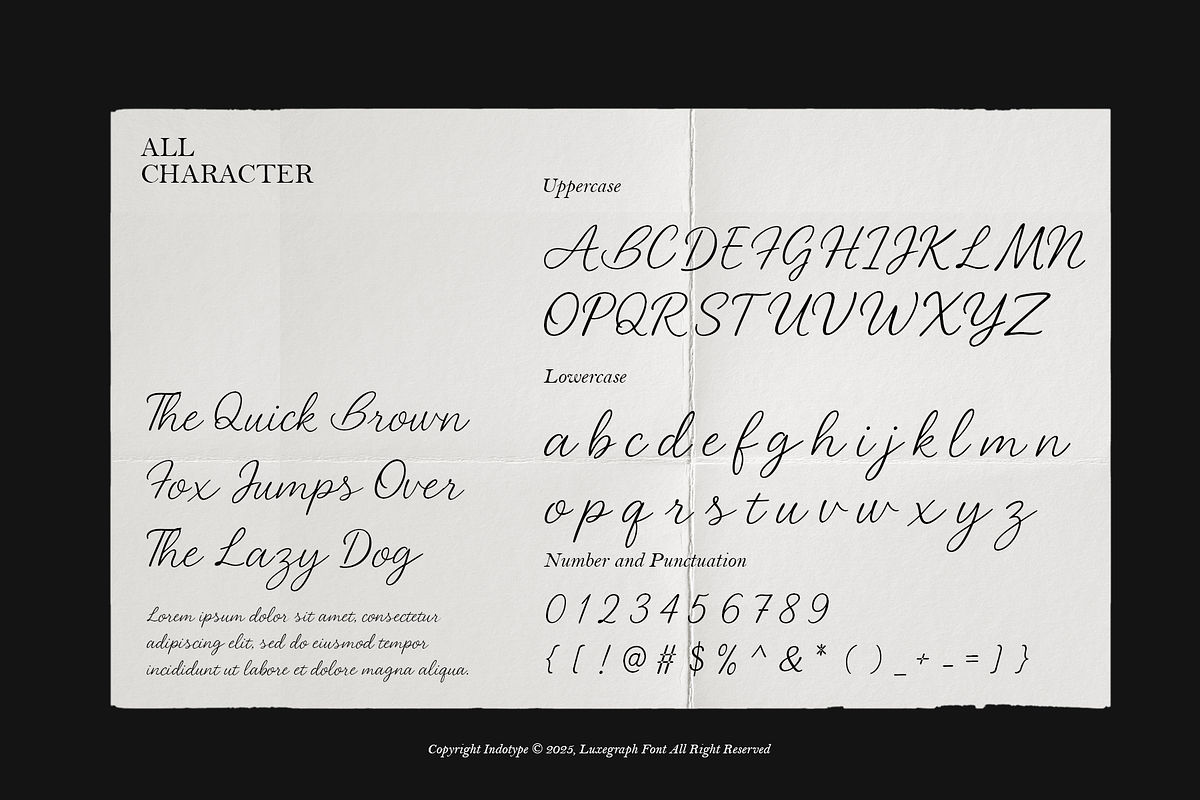 ALL
CHARACTER
The Quick Brown
Fox Jumps Over
The Lazy Dog
Lorem ipsum dolor sit amet, consectetur
adipiscing elit, sed do eiusmod tempor
incididunt ut labore et dolore magna aliqua.
Uppercase
ABCDEFGHIJKLMN
OPQRSTUVWXYZ
Lowercase
a b c d e f g h i j k l m n
o p q r s t u v w x y z
Number and Punctuation
0 1 2 3 4 5 6 7 8 9
{ [ ! @ # $ % ^ & * ( ) _ + - = ] }
Copyright Indotype © 2025, Luxegraph Font All Right Reserved